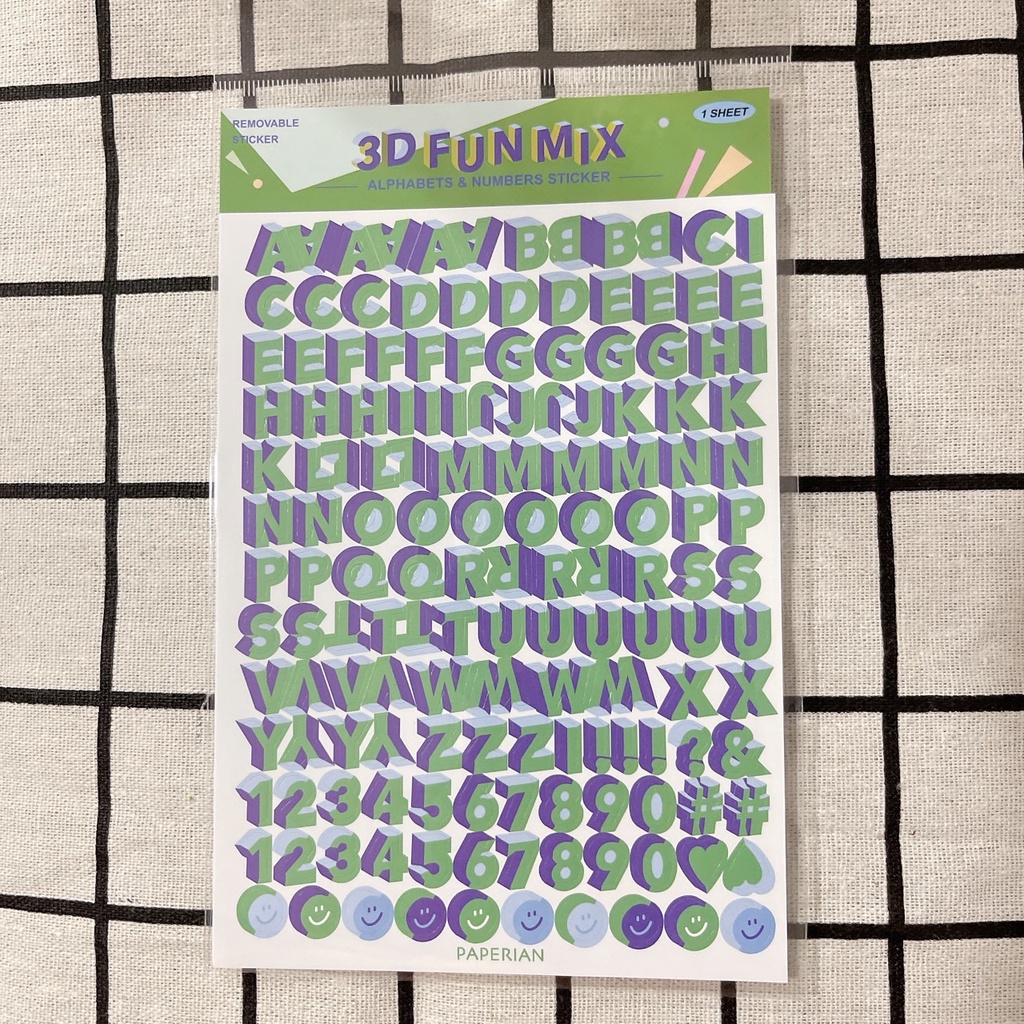 REMOVABLE
STICKER
1 SHEET
3D FUN MIX
ALPHABETS & NUMBERS STICKER
AAAAAABBBBCI
CCCDDDDEEEE
EEFFFFGGGGHI
HHHIIIJJJJKKK
KLLLLMMMMNN
NNOOOOOOPP
PPQQRRRRRSS
SSTTTTTUUUUUU
VVVVWWWWXX
YYYYZZZ!!!!?&
1234567890##
1234567890♥♥
PAPERIAN